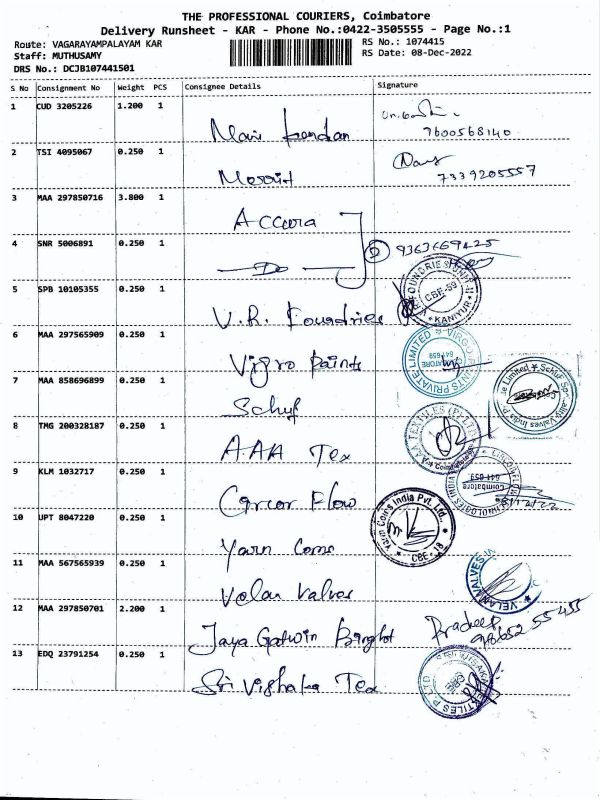 THE PROFESSIONAL COURIERS, Coimbatore
Delivery Runsheet - KAR - Phone No.:0422-3505555 - Page No.:1
Route: VAGARAYAMPALAYAM KAR
Staff: MUTHUSAMY
DRS No.: DCJB107441501
RS No.: 1074415
RS Date: 08-Dec-2022
S No Consignment No Weight PCS Consignee Details Signature
1 CUD 3205226 1.200 1
7600568140
2 TSI 4095067 0.250 1
7339205557
3 MAA 297850716 3.800 1
Accura
4 SNR 5006891 0.250 1
Do
9363669425
5 SPB 10105355 0.250 1
V.R. Foundries
CBE-59
KANIYUR
6 MAA 297565909 0.250 1
Virgro Paints
PAINTS PRIVATE LIMITED
641 659
7 MAA 858696899 0.250 1
Schuf
Valves India
8 TMG 200328187 0.250 1
AAA Tex
9 KLM 1032717 0.250 1
Circor Flow
641 659
Coimbatore
10 UPT 8047220 0.250 1
Yarn Coms
Yarn Coms India Pvt. Ltd.,
CBE - 18
11 MAA 567565939 0.250 1
Velan Valves
VELAN VALVES
12 MAA 297850701 2.200 1
Pradeep
98652 55455
13 EDQ 23791254 0.250 1
Sri Vishaka Tex
CBE